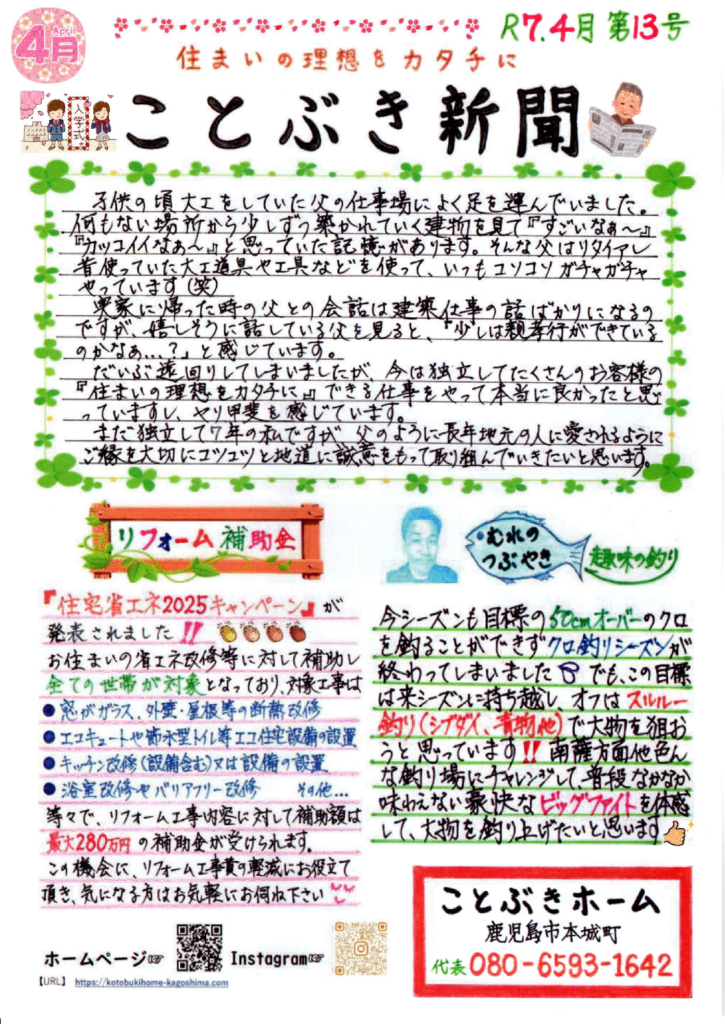 April
4月
R7.4月 第13号
住まいの理想をカタチに
入学式
ことぶき新聞
子供の頃大工をしていた父の仕事場によく足を運んでいました。
何もない場所から少しずつ築かれていく建物を見て『すごいなぁ〜』
『カッコイイなぁ〜』と思っていた記憶があります。そんな父はリタイアし
昔使っていた大工道具や工具などを使って、いつもコソコソガチャガチャ
やっています(笑)
実家に帰った時の父との会話は建築仕事の話ばかりになるの
ですが、嬉しそうに話している父を見ると、『少しは親孝行ができている
のかなぁ…?』と感じています。
だいぶ遠回りしてしまいましたが、今は独立してたくさんのお客様の
『住まいの理想をカタチに』できる仕事をやって本当に良かったと思
っていますし、ヤリ甲斐を感じています。
まだ独立して7年の私ですが、父のように長年地元の人に愛されるように
ご縁を大切にコツコツと地道に誠意をもって取組んでいきたいと思います。
リフォーム補助金
『住宅省エネ2025キャンペーン』が
発表されました!!
お住まいの省エネ改修等に対して補助し
全ての世帯が対象となっており、対象工事は
●窓がガラス、外壁・屋根等の断熱改修
●エコキュートや節水型トイレ等エコ住宅設備の設置
●キッチン改修(設備含む)又は設備の設置
●浴室改修やバリアフリー改修 その他…
等々で、リフォーム工事内容に対して補助額は
最大280万円の補助金が受けられます。
この機会に、リフォーム工事費の軽減にお役立て
頂き、気になる方はお気軽にお伺ね下さい
むれの
つぶやき
趣味の釣り
今シーズンも目標の50cmオーバーのクロ
を釣ることができずクロ釣りシーズンが
終わってしまいました でも、この目標
は来シーズンに持ち越し、オフはスルルー
釣り(シブダイ、青物他)で大物を狙お
うと思っています!! 南薩方面他色ん
な釣り場にチャレンジして、普段なかなか
味わえない豪快なビッグファイトを体感
して、大物を釣り上げたいと思います
ホームページ☞
Instagram☞
【URL】 https://kotobukihome-kagoshima.com
ことぶきホーム
鹿児島市本城町
代表 080-6593-1642